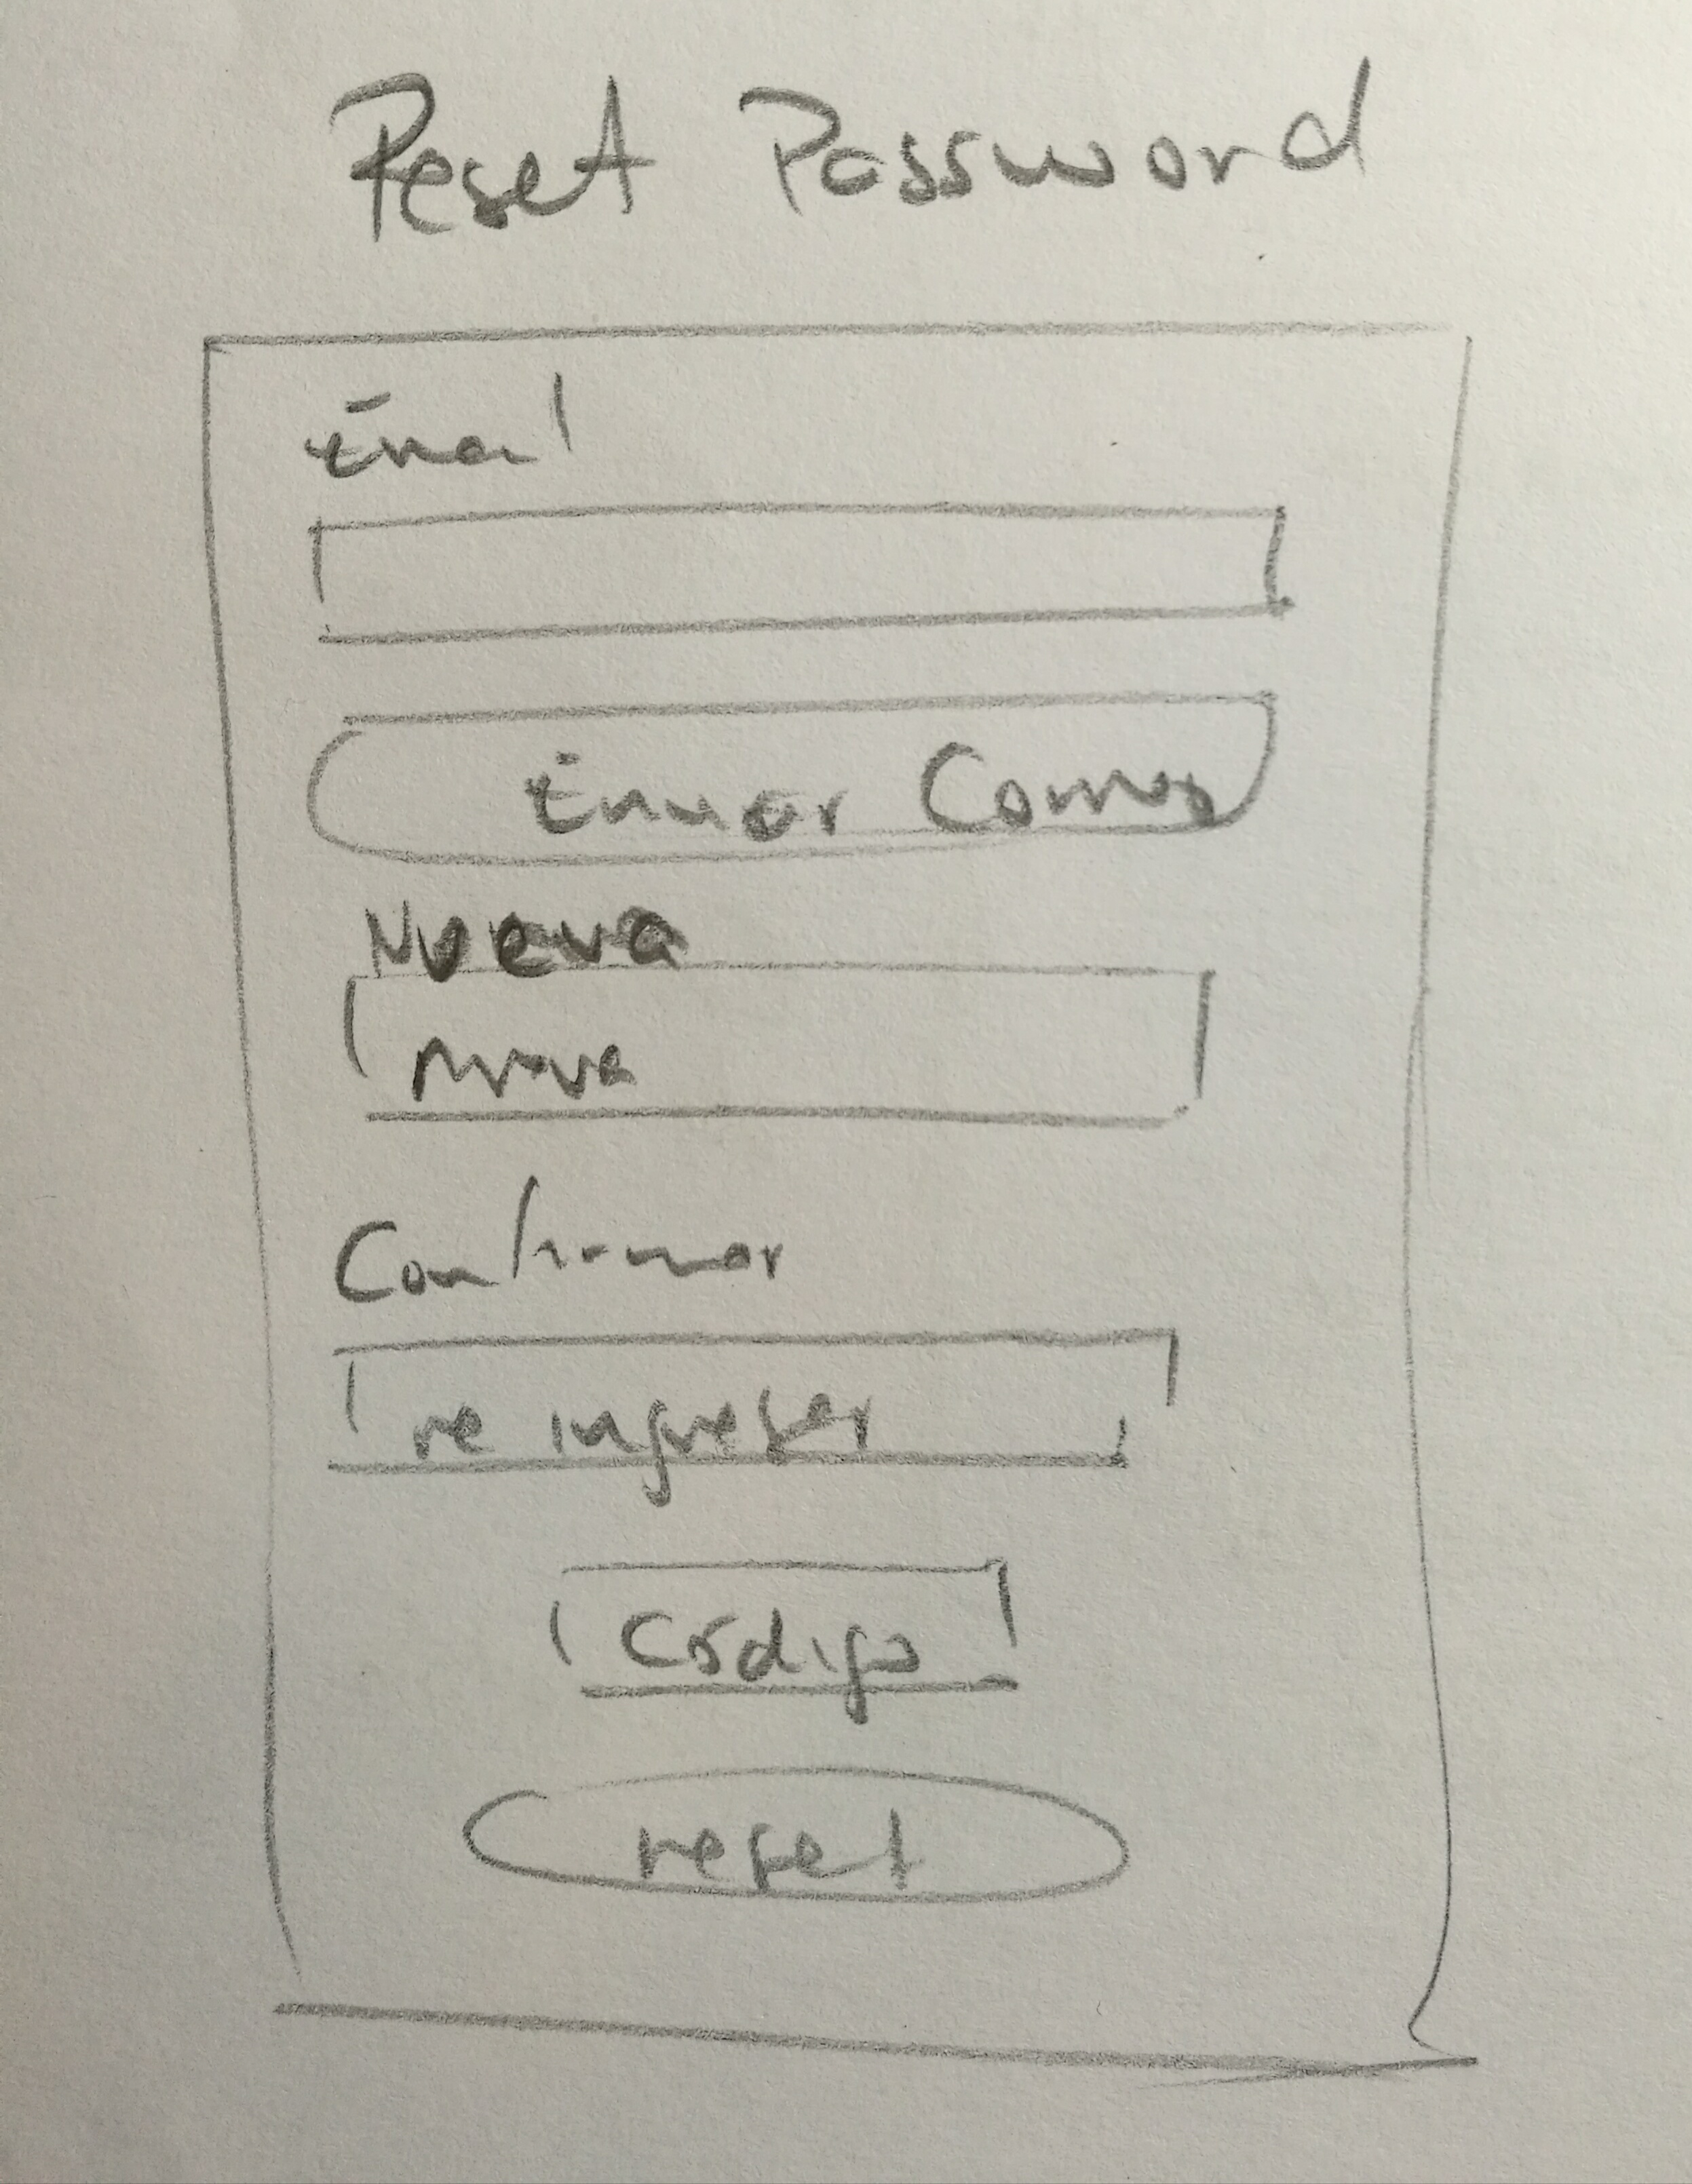 Reset Password
Email
Enviar Correo
Nueva
Nueva
Confirmar
re ingresar
Código
reset